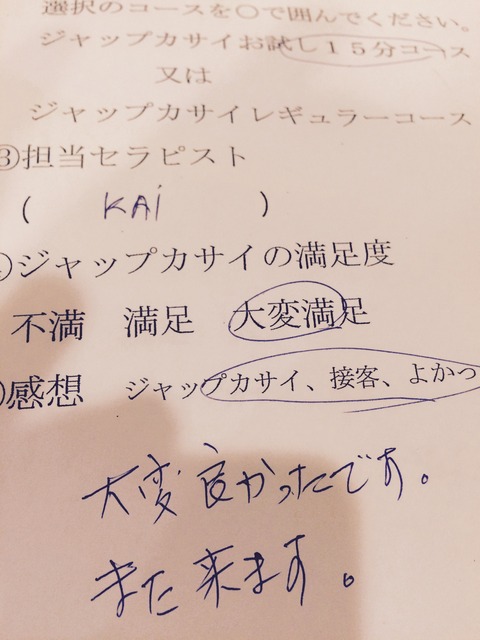 選択のコースを○で囲んでください。
ジャップカサイお試し１５分コース
又は
ジャップカサイレギュラーコース
③担当セラピスト
( KAi )
ジャップカサイの満足度
不満 満足 大変満足
感想 ジャップカサイ、接客、よかっ
大変良かったです。
また来ます。